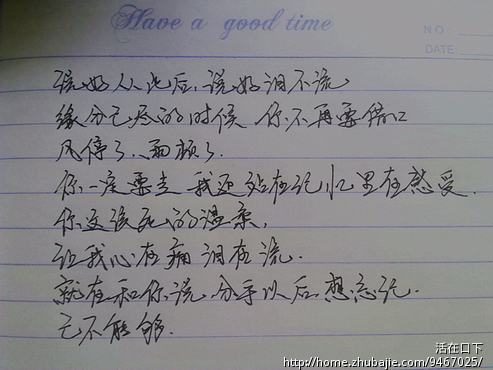 Have a good time
NO
DATE:
说好从此后,说好泪不流
缘分已尽的时候 你不再要借口
风停了.雨顿了.
你一定要走 我还站在记忆里在感受.
你这该死的温柔,
让我心在痛泪在流.
就在和你说分手以后 想忘记.
已不能够.
活在口下
http://home.zhubajie.com/9467025/